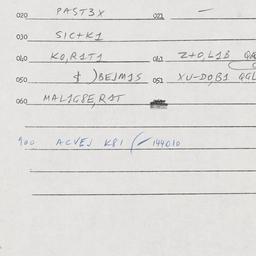 020 PAST3X 021 —
030 SIC+K1
040 KO,R1T1 041 Z+O,L1B
050 & )BEJM1S 051 XU-DO,B1 GGL
060 MAL1G8E,R1T
900 ACVEJ K81 (-144010